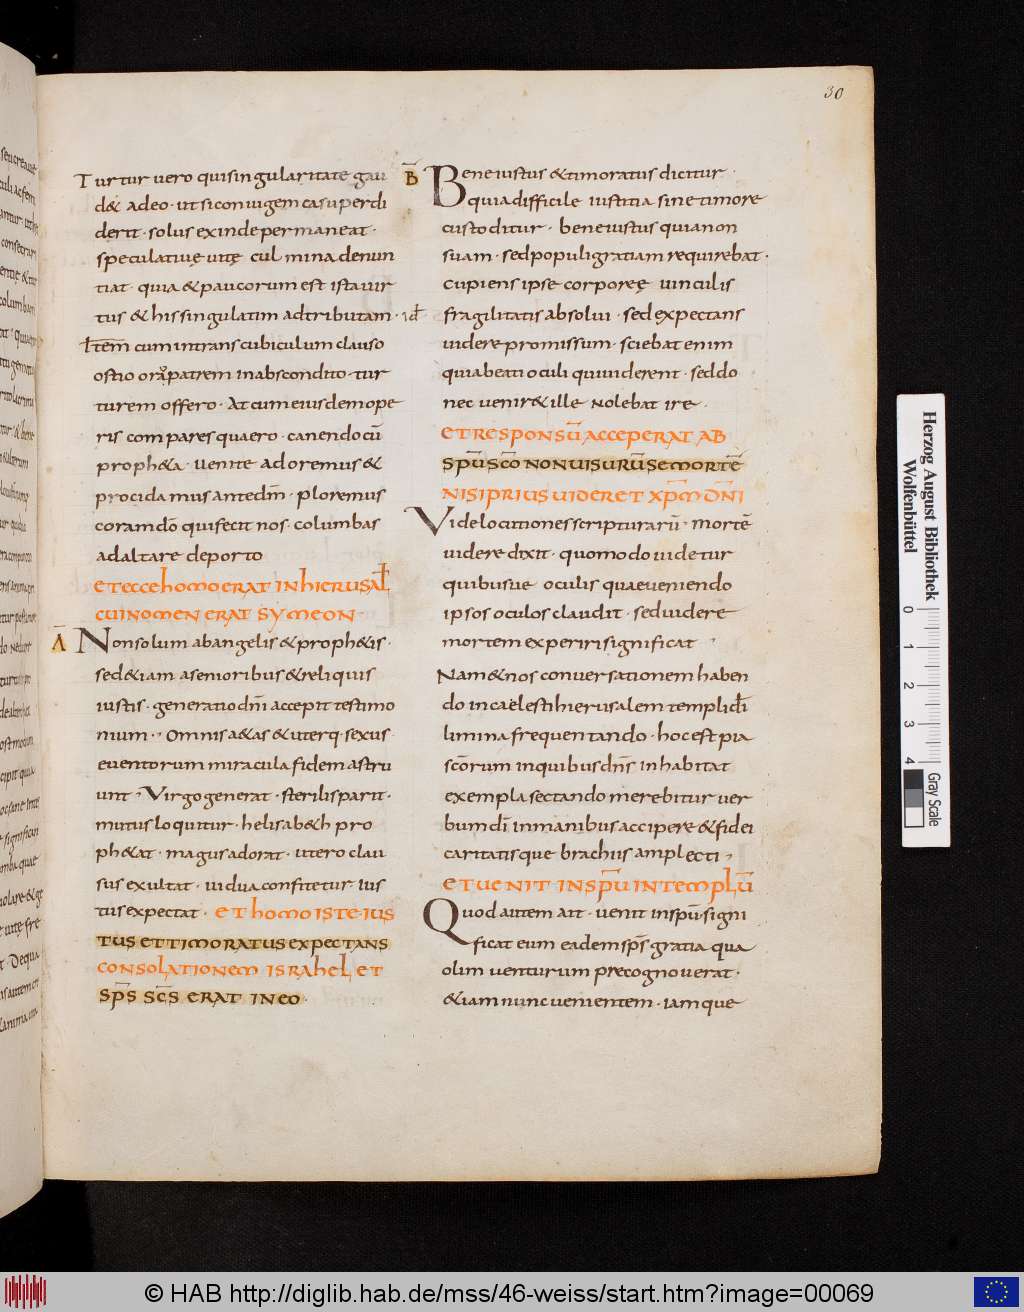 30
Turtur uero qui singularitate gau
d& adeo · ut si coniugem casu perdi
derit · solus exinde permaneat ·
speculatiuę uitę culmina denun
tiat · quia & paucorum est ista uir
tus & his singulatim adtributam · id
Item cum intrans cubiculum clauso
ostio oro patrem in abscondito · tur
turem offero · At cum eiusdem ope
ris compares quaero · canendo cū
proph&a · uenite adoremus &
procidamus ante dm̄ · ploremus
coram dn̄o qui fecit nos · columbas
ad altare deporto
ET ECCE HOMO ERAT IN HIERUSAL̄
CUI NOMEN ERAT SYMEON ·
Ā Non solum ab angelis & proph&is ·
sed &iam a senioribus & reliquis
iustis · generatio dn̄i accepit testimo
nium · Omnis a&as & uterq · sexus ·
euentorum miracula fidem astru
unt · Virgo generat · sterilis parit ·
mutus loquitur · helisab&h pro
ph&at · magus adorat · utero clau
sus exultat · uidua confitetur ius
tus expectat · ET HOMO ISTE · IUS
TUS ET TIMORATUS EXPECTANS
CONSOLATIONEM ISRAHEL ET
SP̄S SC̄S ERAT IN EO ·
B̄ Bene iustus & timoratus dicitur ·
quia difficile iustitia sine timore
custoditur · bene iustus quia non
suam · sed populi gratiam requirebat ·
Cupiens ipse corporeę uinculis
fragilitatis absolui · sed expectans
uidere promissum · sciebat enim
quia beati oculi qui uiderent · sed do
nec uenir& ille nolebat ire ·
ET RESPONSŪ ACCEPERAT AB
SPŪ SC̄O NON UISURŪ SE MORTĒ
NISI PRIUS UIDERET XP̄M DN̄I
Vide locutiones scripturarū · mortē
uidere dixit · quomodo uidetur
quibusue oculis quae ueniendo
ipsos oculos claudit · sed uidere
mortem experiri significat ·
Nam & nos conuersationem haben
do in caelesti hierusalem templi dī
limina frequentando · hoc est pia
sc̄orum in quibus dn̄s inhabitat
exempla sectando merebitur uer
bum dī in manibus accipere & fidei
caritatisque brachiis amplecti ·
ET UENIT IN SPŪ IN TEMPLŪ
Quod autem ait · uenit in spū signi
ficat eum eadem sp̄s gratia qua
olim uenturum precognouerat ·
&iam nunc uenientem · iamque
Herzog August Bibliothek
Wolfenbüttel
0 1 2 3 4
Gray Scale
© HAB http://diglib.hab.de/mss/46-weiss/start.htm?image=00069